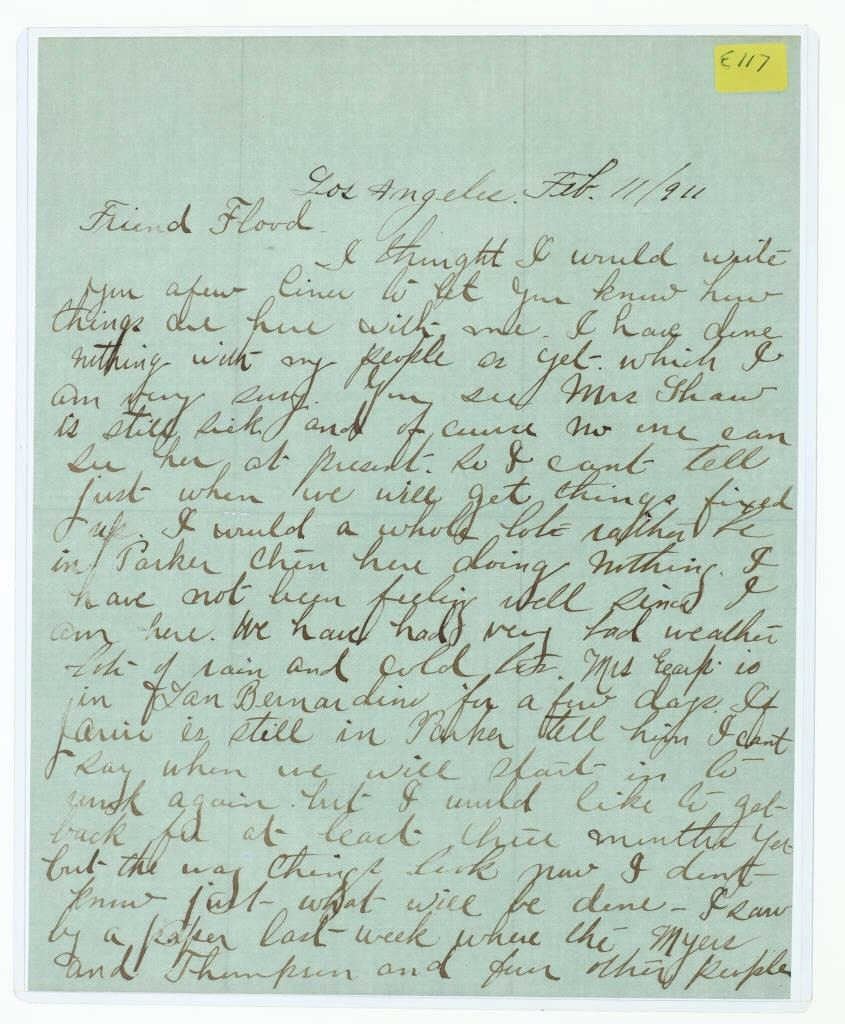 E117
Los Angeles. Feb. 11/911
Friend Flood.
I thought I would write
you a few lines to let you know how
things are here with me. I have done
nothing with my people as yet. which I
am very sorry. You see Mrs Shaw
is still sick and of cause no one can
see her at present. So I cant tell
just when we will get things fixed
up. I would a whole lot rather be
in Parker then here doing nothing. I
have not been feeling well since I
am here. We have had very bad weather
lots of rain and cold too. Mrs Earp is
in San Bernardino for a few days. If
is still in Parker tell him I cant
say when we will start in to
work again. but I would like to get
back for at least three months yet
but the way things look now I dont
know just what will be done - I saw
by a paper last week where the Myers
and Thompson and four other people